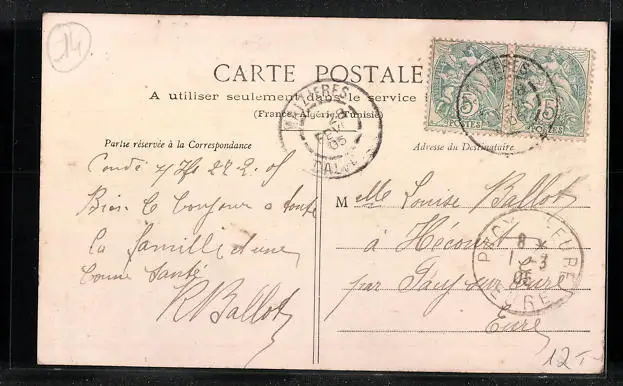 14
CARTE POSTALE
A utiliser seulement dans le service
(France, Algérie, Tunisie)
MÉZIÈRES
28
FEVR
05
CALV
5 5
POSTES
Partie réservée à la Correspondance
Adresse du Destinataire
Condé s/Ifs 27.2.05
Bien le bonjour à toute
la famille et une
bonne santé
R Ballot
Melle Louise Ballot
à Hécourt
par Pacy sur Eure
Eure
PACY-S-EURE
8
1-3
05
EURE
12.-